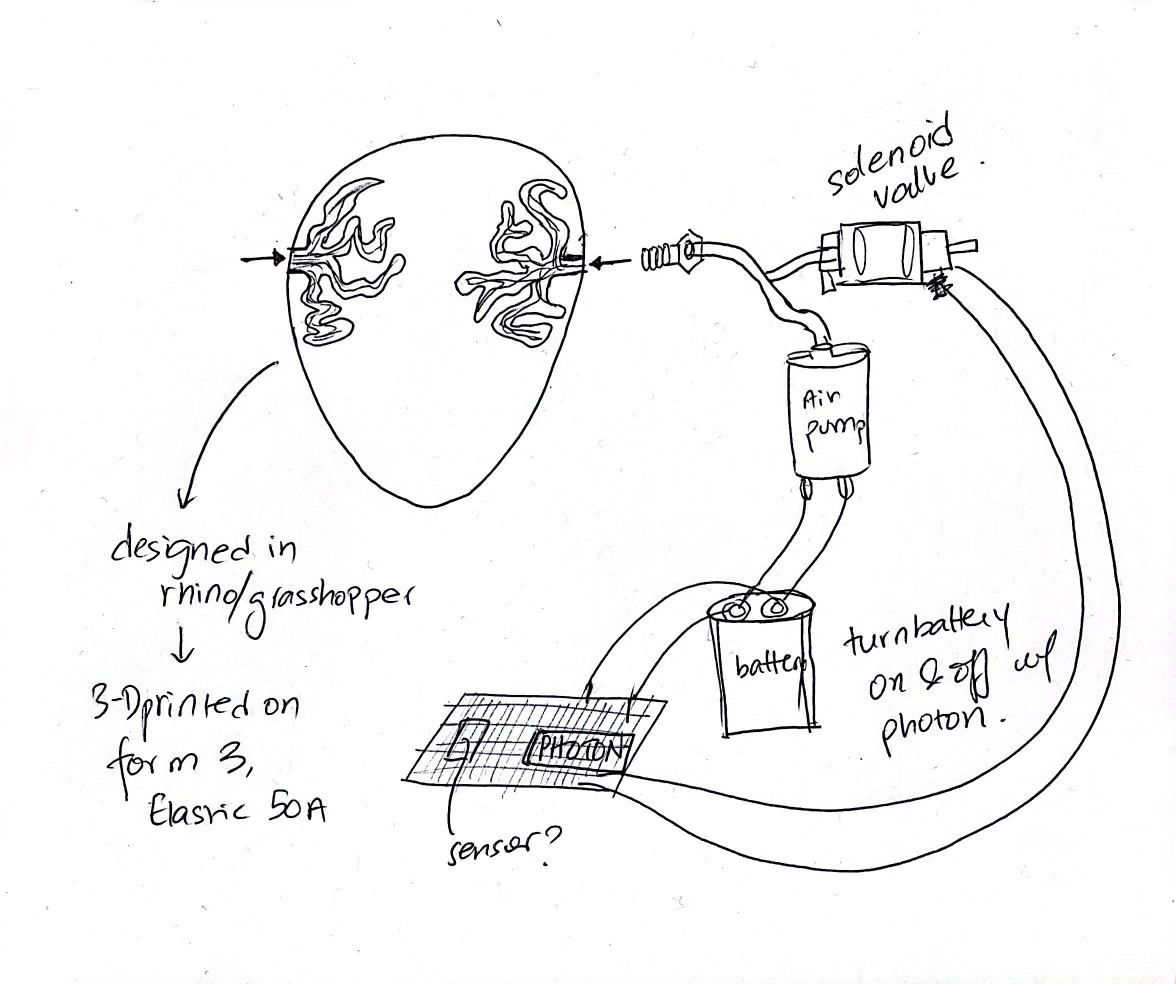 solenoid
valve.
Air
pump
designed in
rhino/grasshopper
3-Dprinted on
form 3,
Elastic 50A
battery
turnbattery
on & off w/
photon.
PHOTON
sensor?